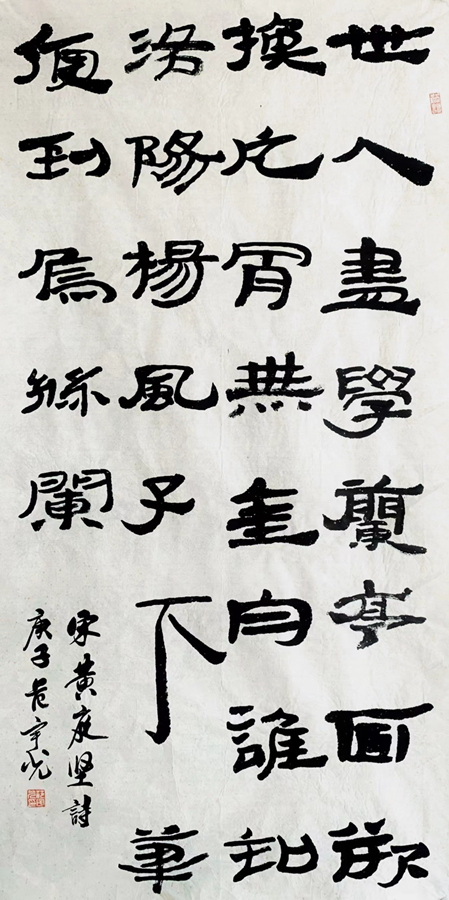 世人盡學蘭亭面欲
換凡骨無金丹誰知
洛陽楊風子下筆
便到烏絲闌
宋黄庭坚詩
庚子宇光